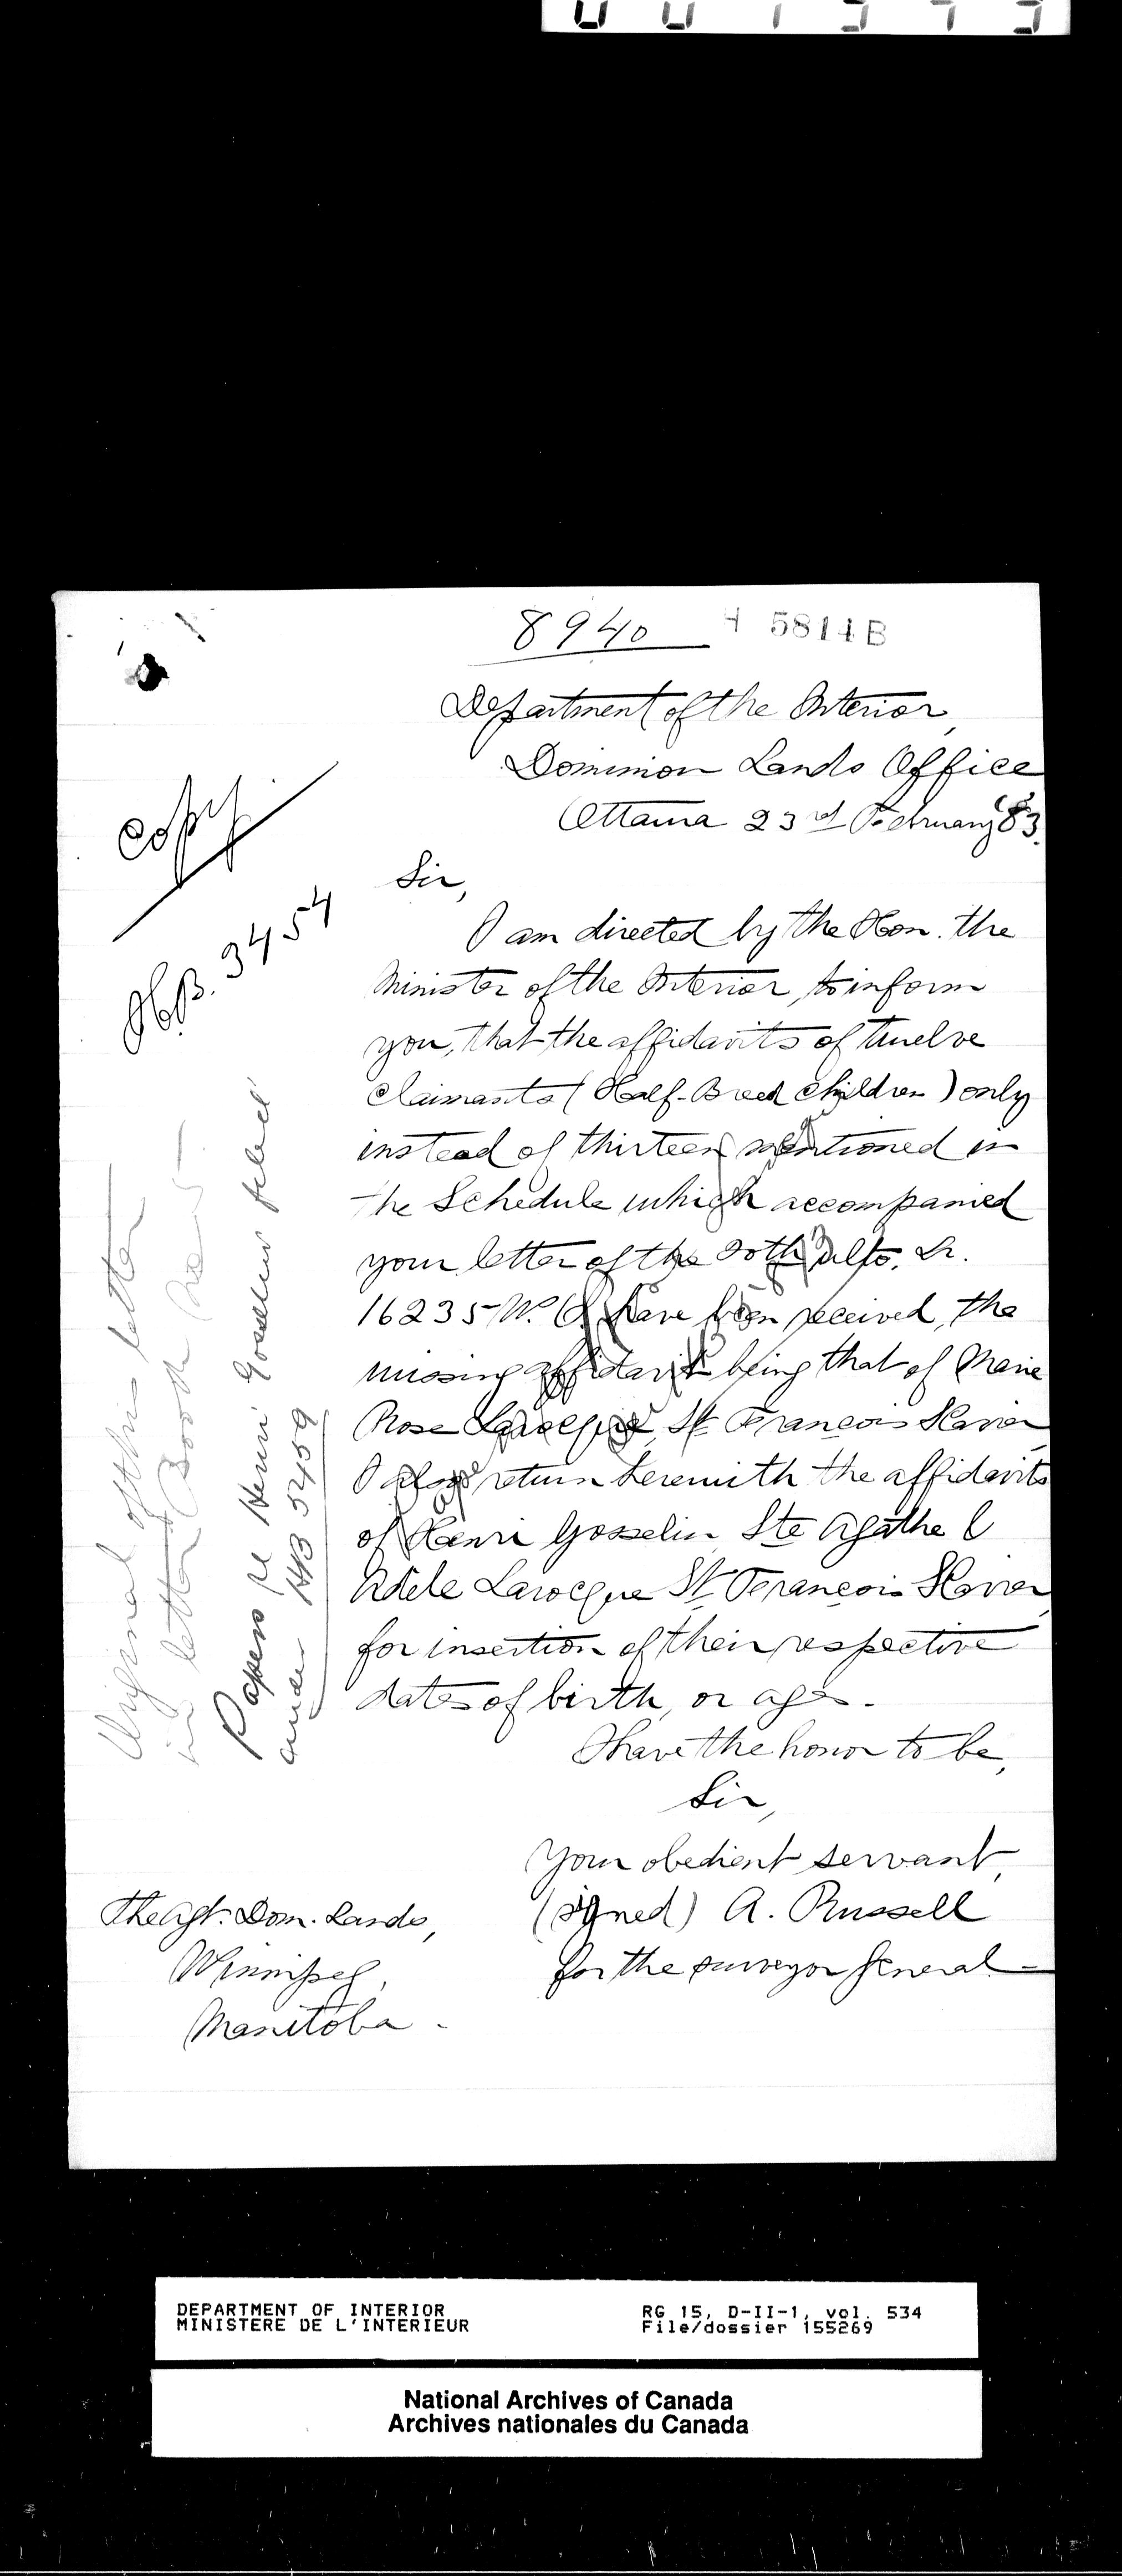 8940
5814B
Department of the Interior,
Dominion Lands Office
Ottawa 23rd February '83.
Copy
HB. 3454
Sir,
I am directed by the Hon. the
Minister of the Interior, to inform
you, that the affidavits of twelve
claimants (Half-Breed Children) only
instead of thirteen mentioned in
the Schedule which accompanied
your letter of the ulto.
16235 W. have been received, the
missing affidavit being that of Marie
Rose Larocque, St François Xavier
I also return herewith the affidavits
of Henri Gosselin Ste Agathe &
Adele Larocque St François Xavier,
for insertion of their respective
dates of birth, or ages.
I have the honor to be,
Sir,
Your obedient servant,
(signed) A. Russell
for the surveyor General
The Agt. Dom. Lands,
Winnipeg,
Manitoba.
Original of this letter
in letter Book
Papers re Henri Gosselin filed
under HB 5459
DEPARTMENT OF INTERIOR
MINISTERE DE L'INTERIEUR
RG 15, D-II-1, vol. 534
File/dossier 155269
National Archives of Canada
Archives nationales du Canada